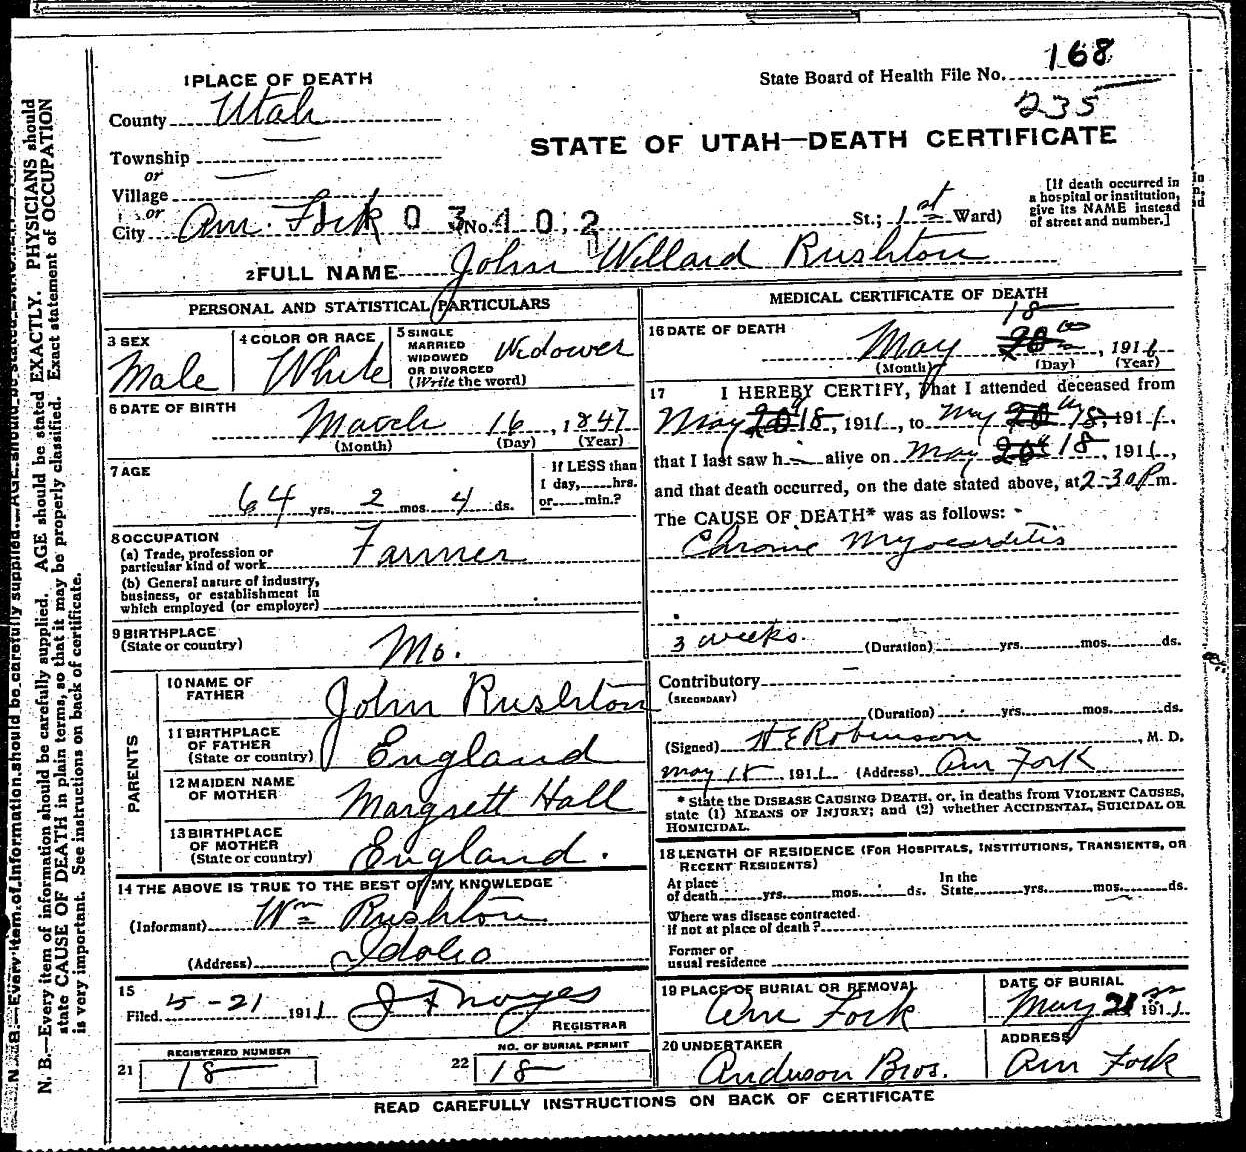 1 PLACE OF DEATH
State Board of Health File No. 168
235
County Utah
STATE OF UTAH—DEATH CERTIFICATE
Township
or
Village
or
City Am. Fork 03402 No. St.; 1st Ward)
[If death occurred in a hospital or institution, give its NAME instead of street and number.]
2 FULL NAME John Willard Rushton
PERSONAL AND STATISTICAL PARTICULARS
3 SEX
Male
4 COLOR OR RACE
White
5 SINGLE
MARRIED
WIDOWED
OR DIVORCED
(Write the word)
Widower
6 DATE OF BIRTH
March 16, 1847
(Month) (Day) (Year)
7 AGE
64 yrs. 2 mos. 4 ds.
If LESS than
1 day, hrs.
or min.?
8 OCCUPATION
(a) Trade, profession or
particular kind of work Farmer
(b) General nature of industry,
business, or establishment in
which employed (or employer)
9 BIRTHPLACE
(State or country) Mo.
PARENTS
10 NAME OF
FATHER John Rushton
11 BIRTHPLACE
OF FATHER
(State or country) England
12 MAIDEN NAME
OF MOTHER Margrett Hall
13 BIRTHPLACE
OF MOTHER
(State or country) England.
14 THE ABOVE IS TRUE TO THE BEST OF MY KNOWLEDGE
(Informant) Wm Rushton
(Address) Idaho
15
Filed 5-21 1911 J F Noyes
REGISTRAR
REGISTERED NUMBER
21 18
NO. OF BURIAL PERMIT
22 18
MEDICAL CERTIFICATE OF DEATH
16 DATE OF DEATH
18
May 20, 1911
(Month) (Day) (Year)
17 I HEREBY CERTIFY, That I attended deceased from
May 20 18, 1911, to May 20 18, 1911,
that I last saw h alive on May 20 18, 1911,
and that death occurred, on the date stated above, at 2-30 P m.
The CAUSE OF DEATH* was as follows:
Chronic Myocarditis
3 weeks. (Duration) yrs. mos. ds.
Contributory
(SECONDARY)
(Duration) yrs. mos. ds.
(Signed) H E Robinson, M. D.
May 18 1911 (Address) Am Fork
* State the DISEASE CAUSING DEATH, or, in deaths from VIOLENT CAUSES,
state (1) MEANS OF INJURY; and (2) whether ACCIDENTAL, SUICIDAL OR
HOMICIDAL.
18 LENGTH OF RESIDENCE (FOR HOSPITALS, INSTITUTIONS, TRANSIENTS, OR
RECENT RESIDENTS)
At place
of death yrs. mos. ds. In the
State yrs. mos. ds.
Where was disease contracted
if not at place of death?
Former or
usual residence
19 PLACE OF BURIAL OR REMOVAL
Am Fork
DATE OF BURIAL
May 21 1911
20 UNDERTAKER
Anderson Bros.
ADDRESS
Am Fork
READ CAREFULLY INSTRUCTIONS ON BACK OF CERTIFICATE
N. B.—Every item of information should be carefully supplied. AGE should be stated EXACTLY. PHYSICIANS should
state CAUSE OF DEATH in plain terms, so that it may be properly classified. Exact statement of OCCUPATION
is very important. See instructions on back of certificate.